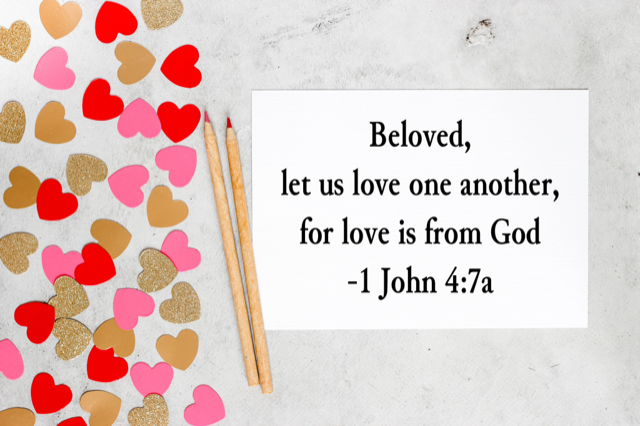 Beloved,
let us love one another,
for love is from God
-1 John 4:7a